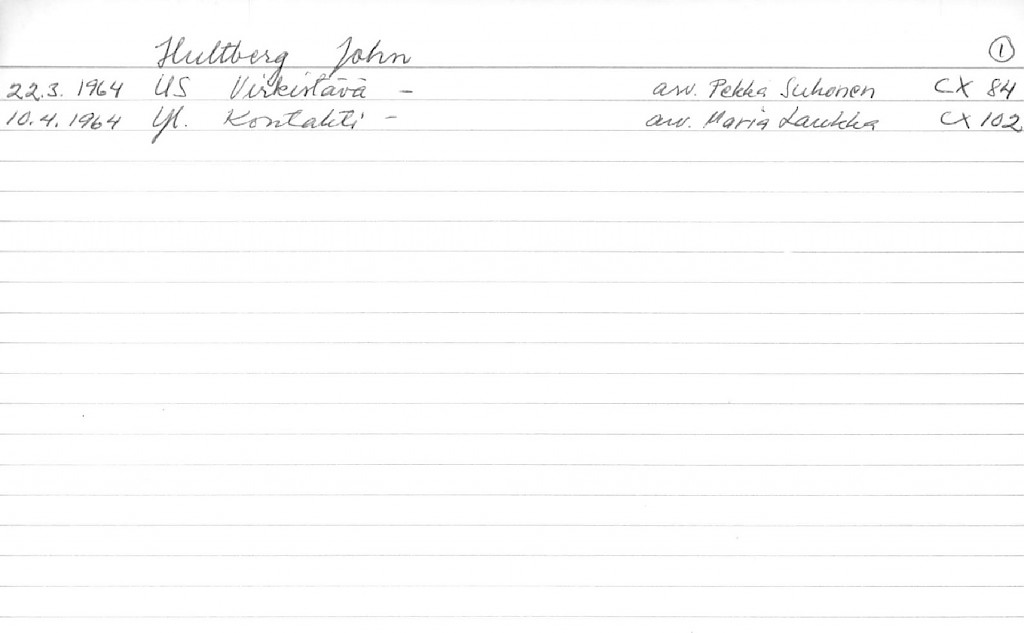 Hultberg John 1
22.3. 1964 US Virkistävä - arv. Pekka Suhonen CX 84
10.4. 1964 Yl. Kontakti - arv. Maria Laukka CX 102